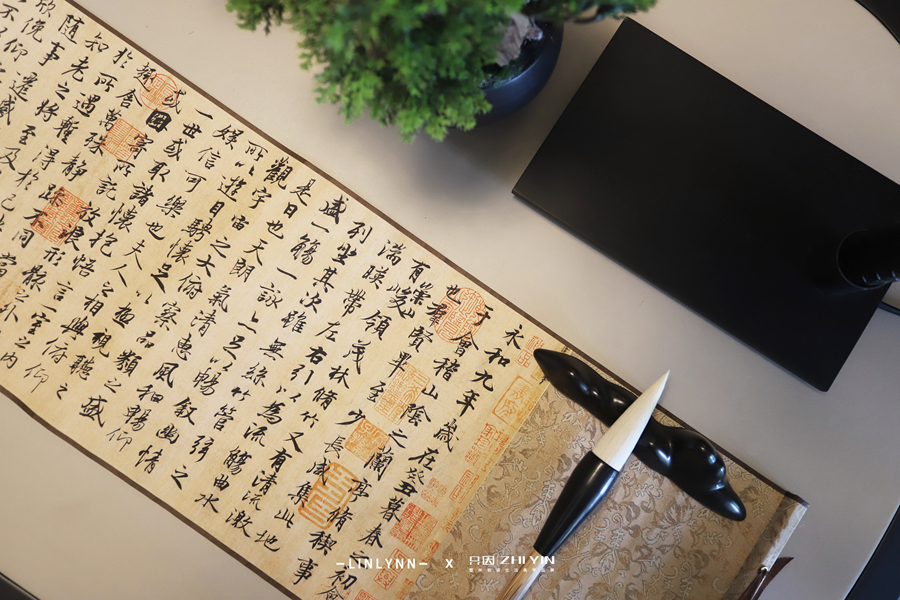 永和九年歲在癸丑暮春之初會
于會稽山陰之蘭亭脩稧事
也群賢畢至少長咸集此地
有崇山峻領茂林脩竹又有清流激
湍暎帶左右引以為流觴曲水
列坐其次雖無絲竹管弦之
盛一觴一詠亦足以暢敘幽情
是日也天朗氣清惠風和暢仰
觀宇宙之大俯察品類之盛
所以遊目騁懷足以極視聽之
娛信可樂也夫人之相與俯仰
一世或取諸懷抱悟言一室之內
或因寄所託放浪形骸之外
趣舍萬殊靜躁不同當
於所遇暫得於己
知老之將至及
隨事遷感
欣俛仰
不
-LINLYNN- x 只因 ZHI YIN